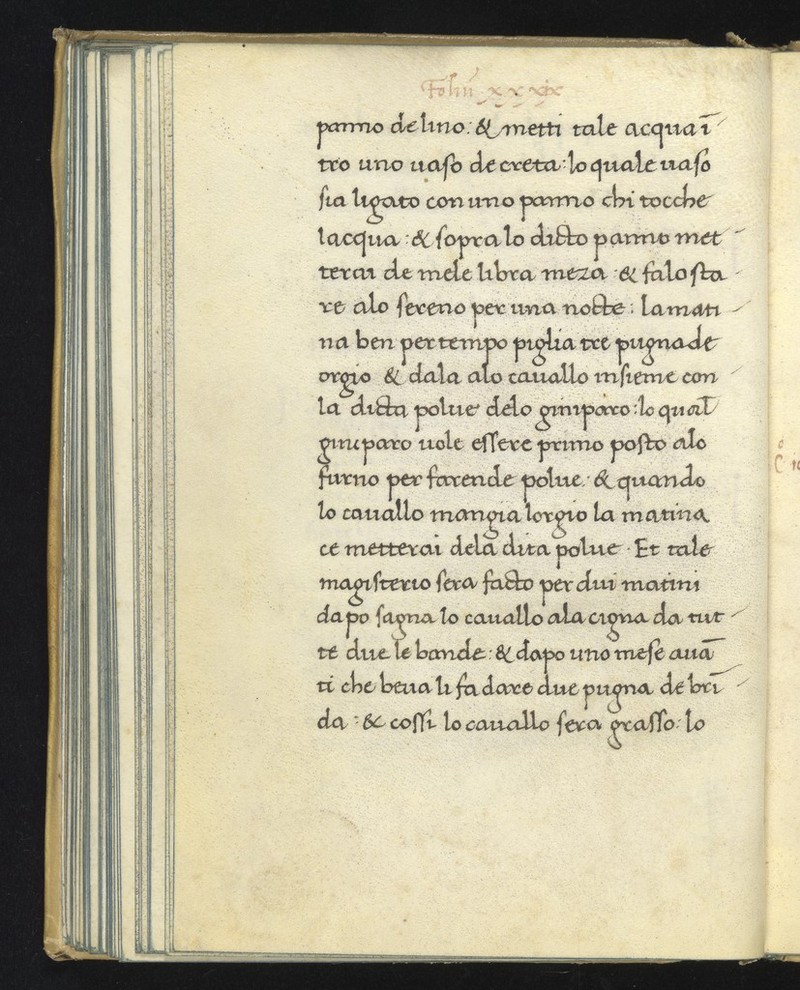 Foliū xxxix
panno de lino: & metti tale acqua ī
tro uno uaso de creta: lo quale uaso
sia ligato con uno panno chi tocche
lacqua: & sopra lo dicto panno met
terai de mele libra meza · & falo sta
re alo sereno per una nocte: la mati
na ben per tempo piglia tre pugna de
orgio & dala alo cauallo insieme con
la dicta polue delo giniparo: lo qual
giniparo uole essere primo posto alo
furno per farende polue · & quando
lo cauallo mangia lorgio la matina
ce metterai dela dita polue · Et tale
magisterio sera facto per dui matini
dapo sagna lo cauallo ala cigna da tut
te due le bande: & dapo uno mese auā
ti che beua li fa dare due pugna de brī
da: & cossi lo cauallo sera grasso: lo